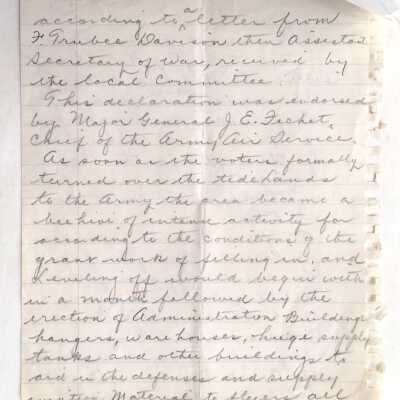 according to a letter from
F. Trubee Davison then Assistant
Secretary of War, received by
the local Committee.
This declaration was endorsed
by Major General J. E. Fechet,
Chief of the Army Air Service.
As soon as the voters formally
turned over the tidelands
to the Army the area became a
beehive of intense activity for
according to the conditions of the
grant work of filling in, and
leveling off would begin with
in a month followed by the
erection of Administration Buildings
hangers, warehouses, huge supply
tanks and other buildings to
aid in the defenses and supply
Material to flyers all